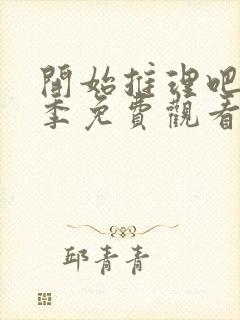 開始推理吧
季免費觀看
邱青青